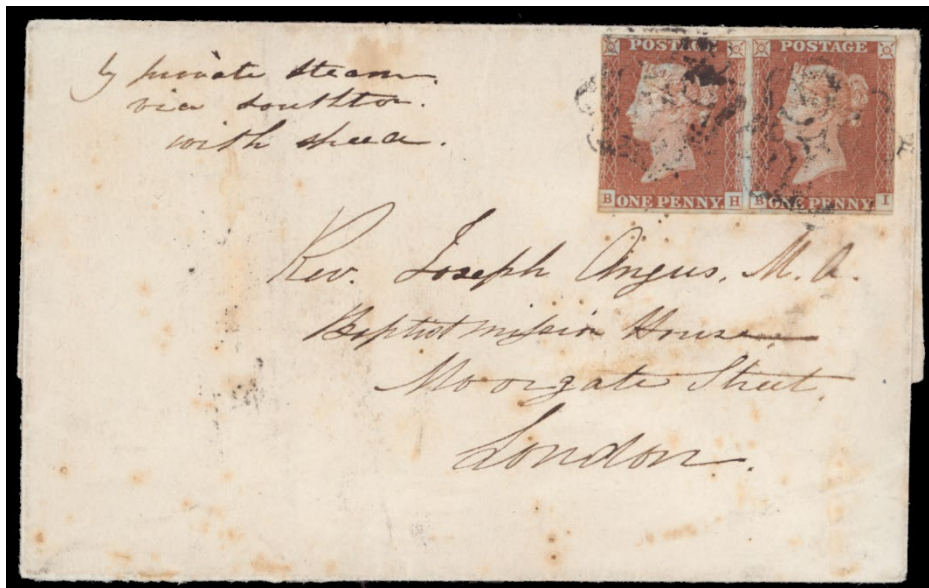 by private steam.
via Southton.
with speed.
POSTAGE
B ONE PENNY H
POSTAGE
B ONE PENNY I
Rev. Joseph Angus, M. A.
Baptist Mission House
Moorgate Street,
London.